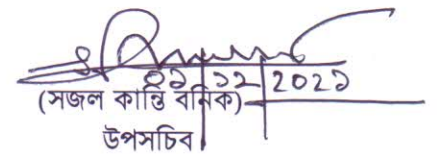 ০১|১২|২০২১
(সজল কান্তি বনিক)
উপসচিব